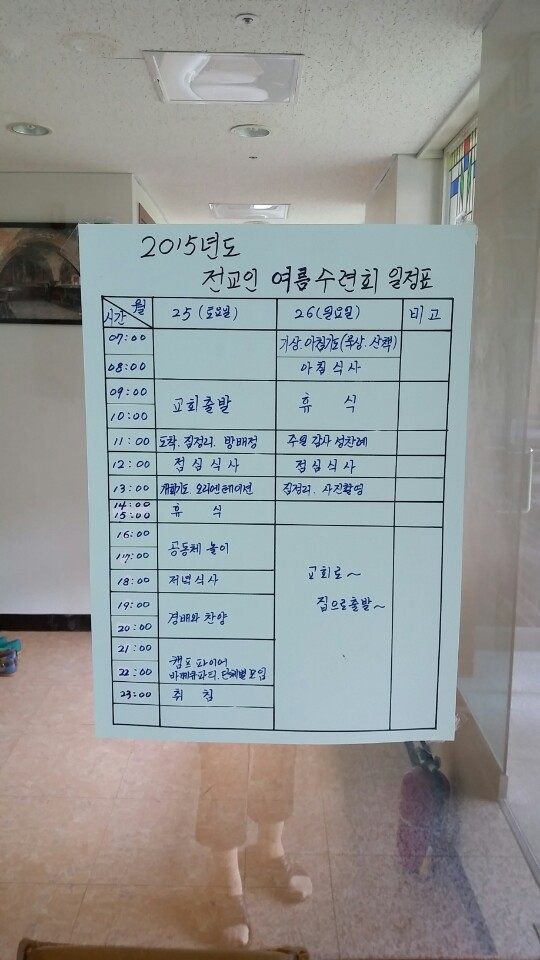 2015년도
전교인 여름수련회 일정표
월
시간
25 (토요일)
26 (월요일)
비고
07:00
기상.아침기도(묵상.산책)
08:00
아침식사
09:00
교회출발
휴 식
10:00
11:00
도착.짐정리. 방배정
주일 감사 성찬예
12:00
점심식사
점심식사
13:00
개회기도. 오리엔테이션
짐정리. 사진촬영
14:00
15:00
휴 식
16:00
공동체 놀이
17:00
교회로~
18:00
저녁식사
집으로출발~
19:00
경배와 찬양
20:00
21:00
캠프파이어
바베큐파티.단체별모임
22:00
23:00
취 침